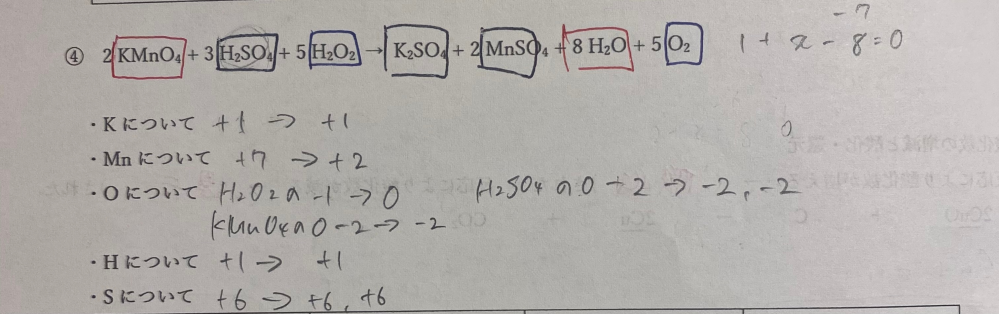 -7
④ 2KMnO₄ + 3H₂SO₄ + 5H₂O₂ → K₂SO₄ + 2MnSO₄ + 8H₂O + 5O₂
1 + x - 8 = 0
・Kについて +1 → +1
・Mnについて +7 → +2
・Oについて H₂O₂の -1 → 0 H₂SO₄のO -2 → -2, -2
KMnO₄のO -2 → -2
・Hについて +1 → +1
・Sについて +6 → +6, +6